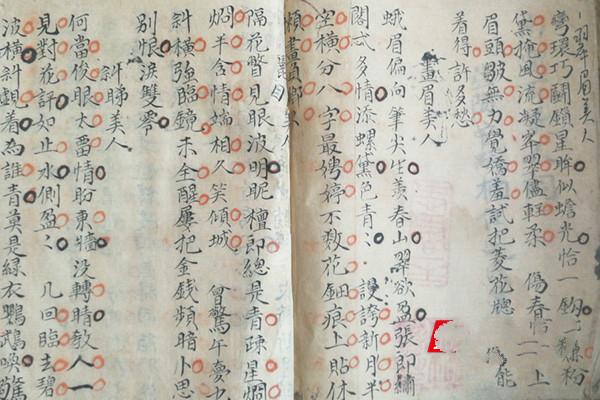 眉美人
彎環巧鬭鎖星眸似蟾光恰一鈎粉
黛掩風流凝翠儘輕柔 傷春恰上
眉頭皺無力覺僑羞試把菱花牕 能
着得許多愁
畫眉美人
蛾眉偏向筆尖生羨春山翠欲盈張郎繡
閣忒多情添螺黛色青〻 謾誇新月半
空橫分八字最娉婷不教花鈿痕上貼休
頻畫
人
隔花瞥見眼波明昵檀郎總是青疎星炯
炯半含情端相久笑傾城 曾驚午夢少
斜橫強臨鏡未全醒屢把金錢頻暗卜思
別恨淚雙零
斜睇美人
何當俊眼太畱情盼東牆沒轉睛教人一
見對花評如止水側盈〻 几回臨去碧
波橫斜覷着為誰青莫是綠衣鸚鵡喚驚